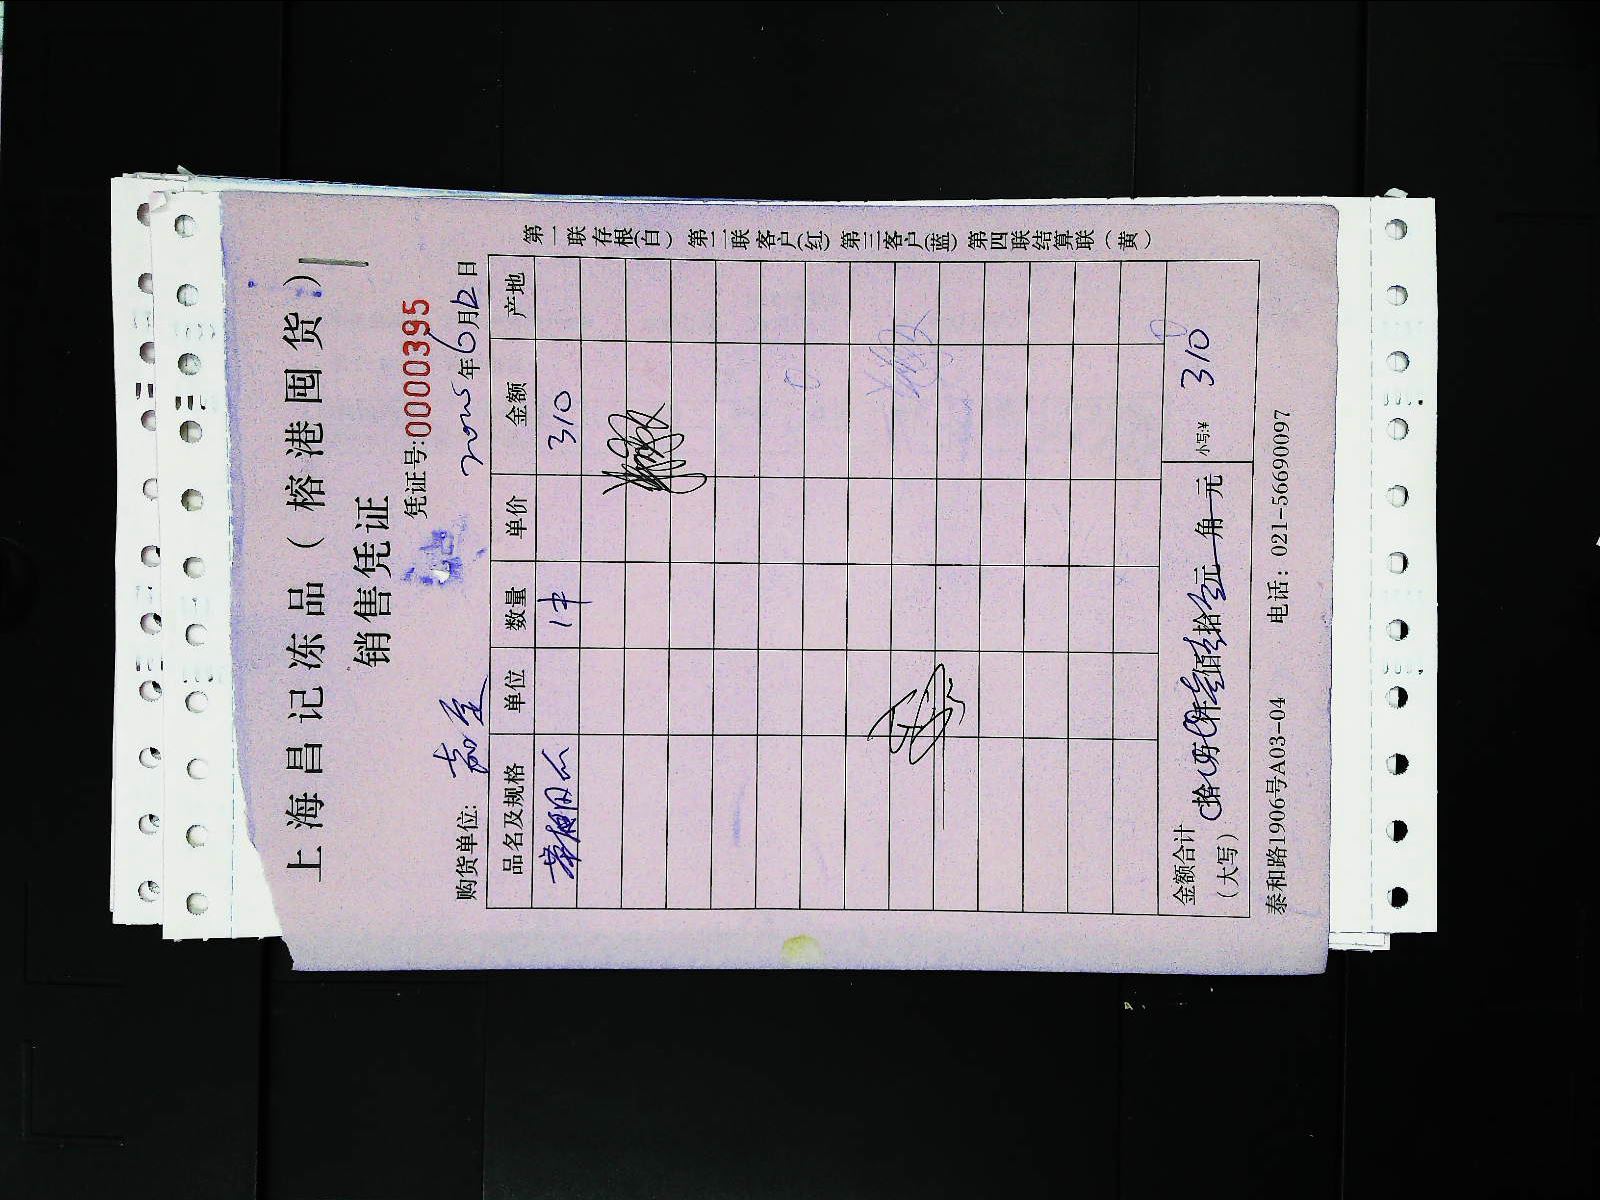 上海昌记冻品（榕港囤货）
销售凭证
凭证号:0000395
购货单位: 年6月12日
品名及规格 单位 数量 单价 金额 产地
1件 310
金额合计（大写） 拾 万 仟 佰 拾 元 角 元 小写:¥ 310
泰和路1906号A03-04 电话: 021-56690097
第一联存根(白) 第二联客户(红) 第三客户(蓝) 第四联结算联(黄)